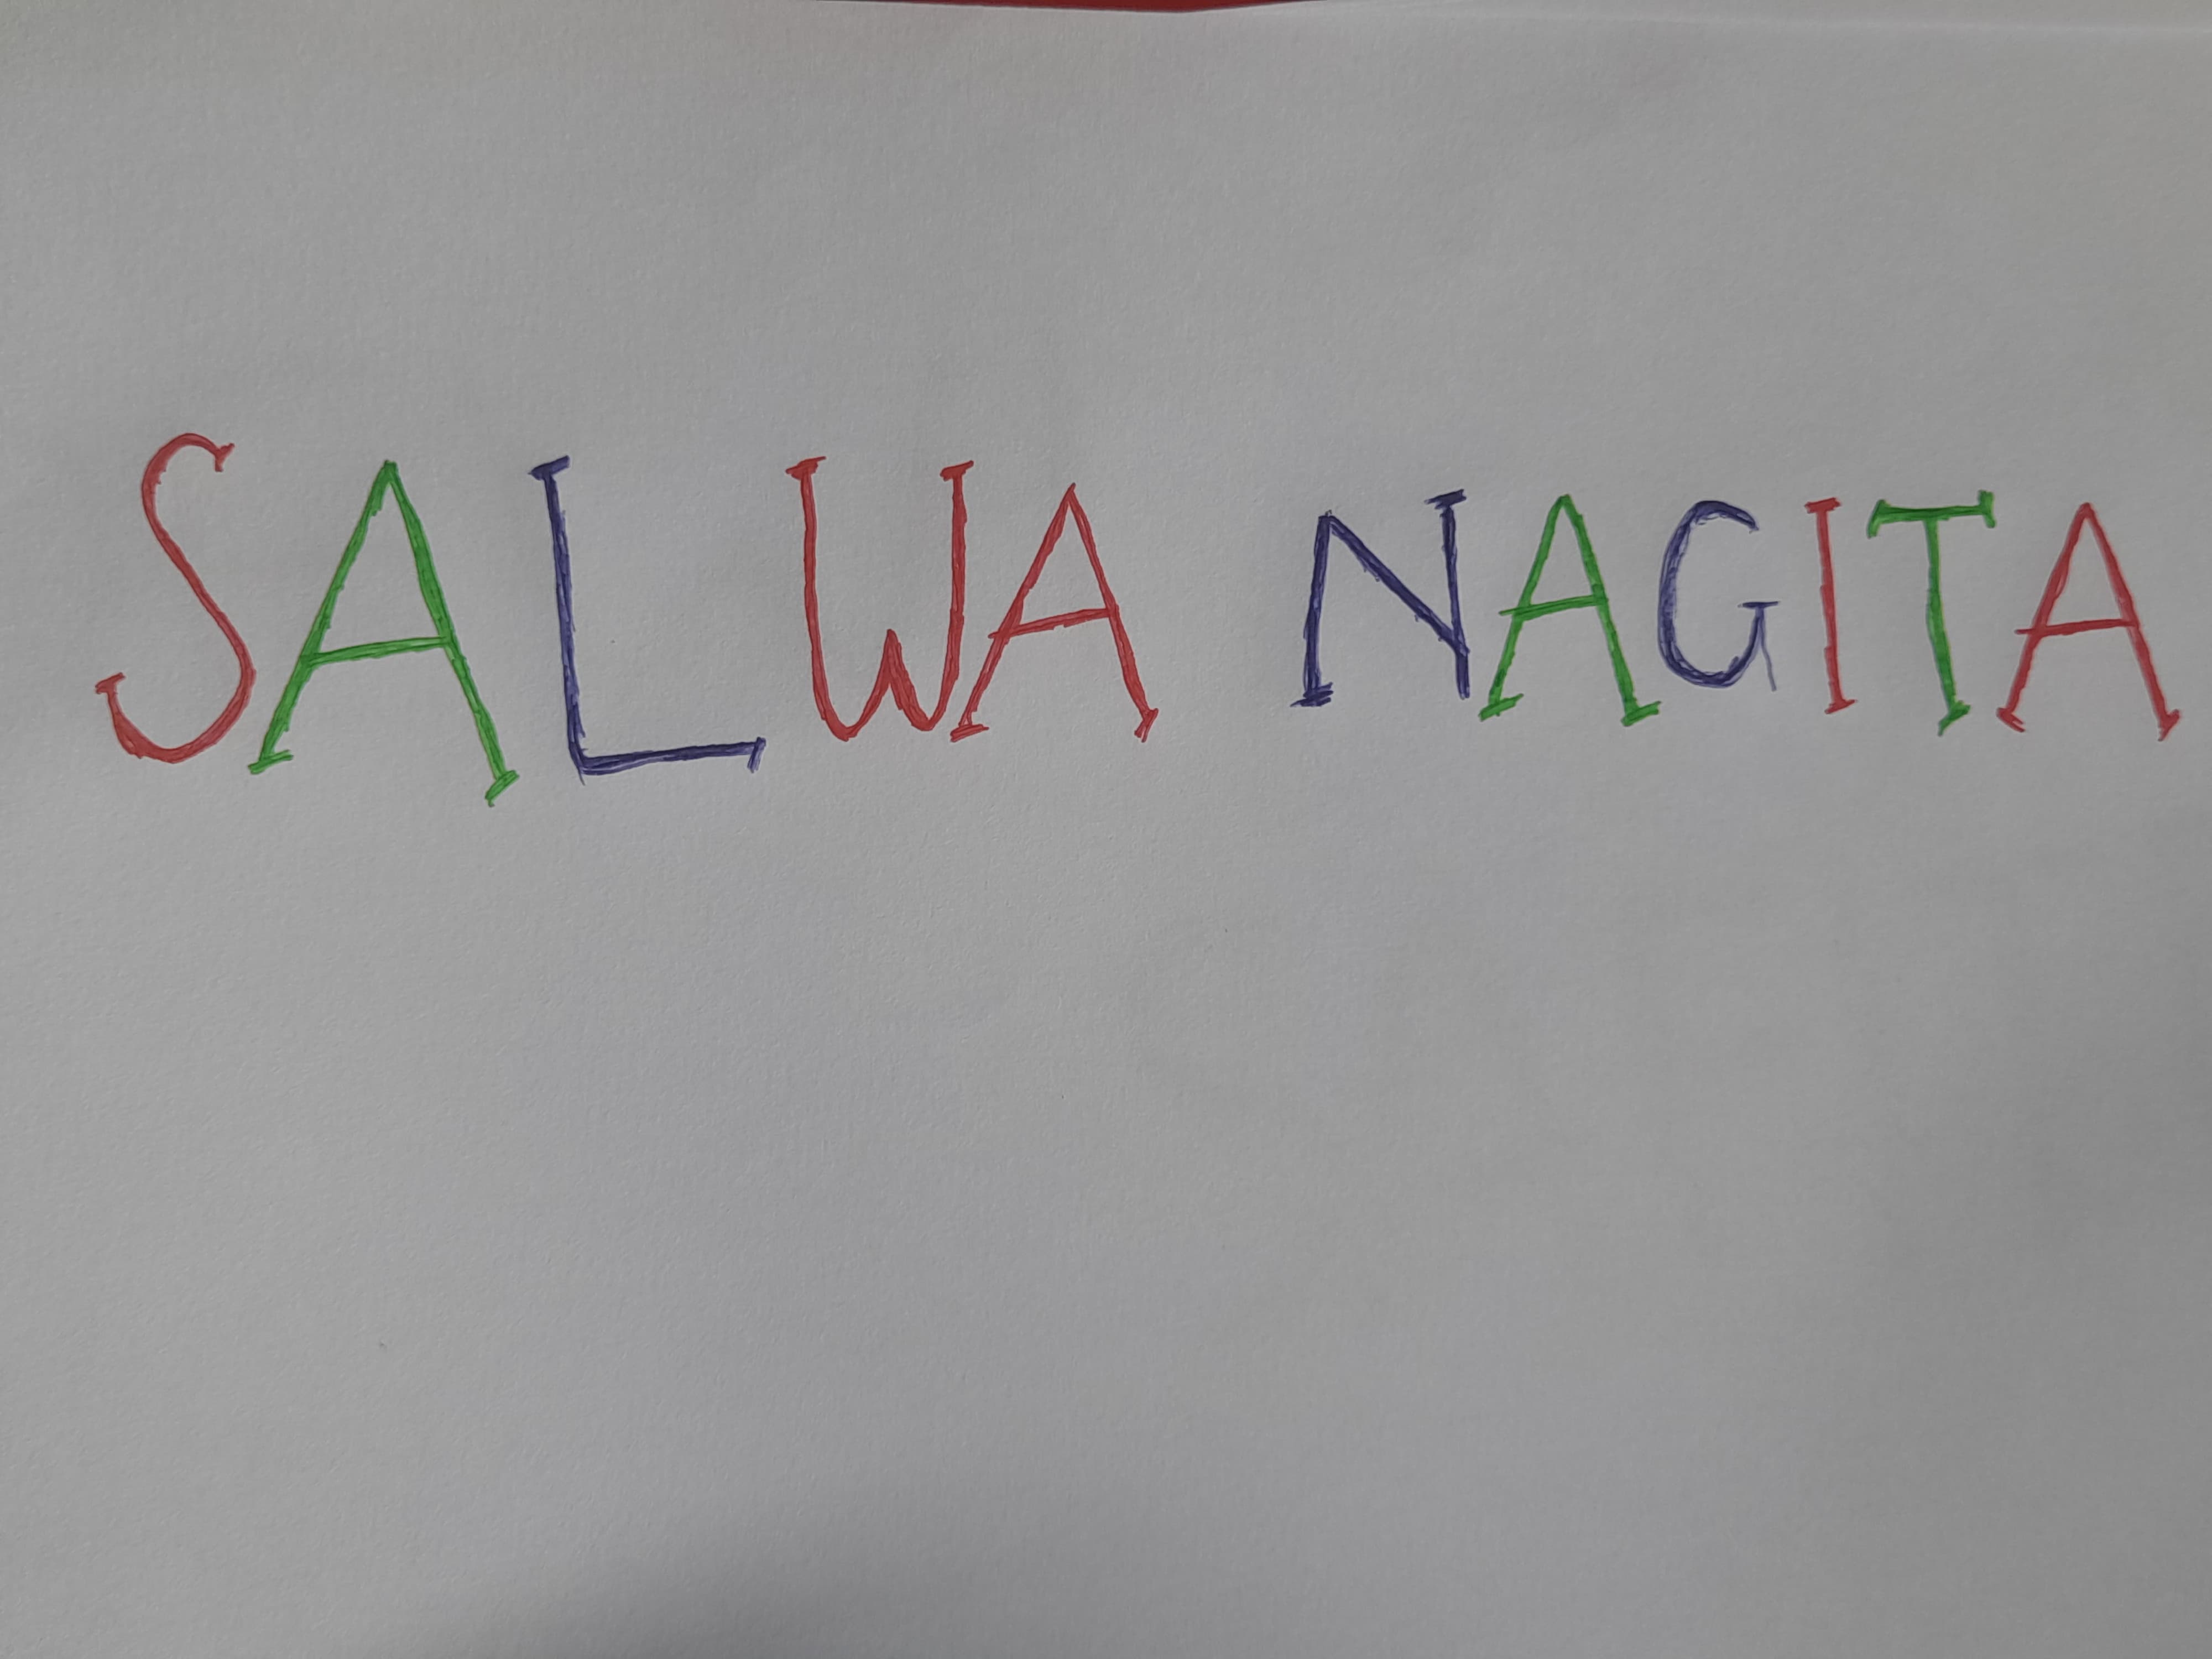 SALWA NAGITA